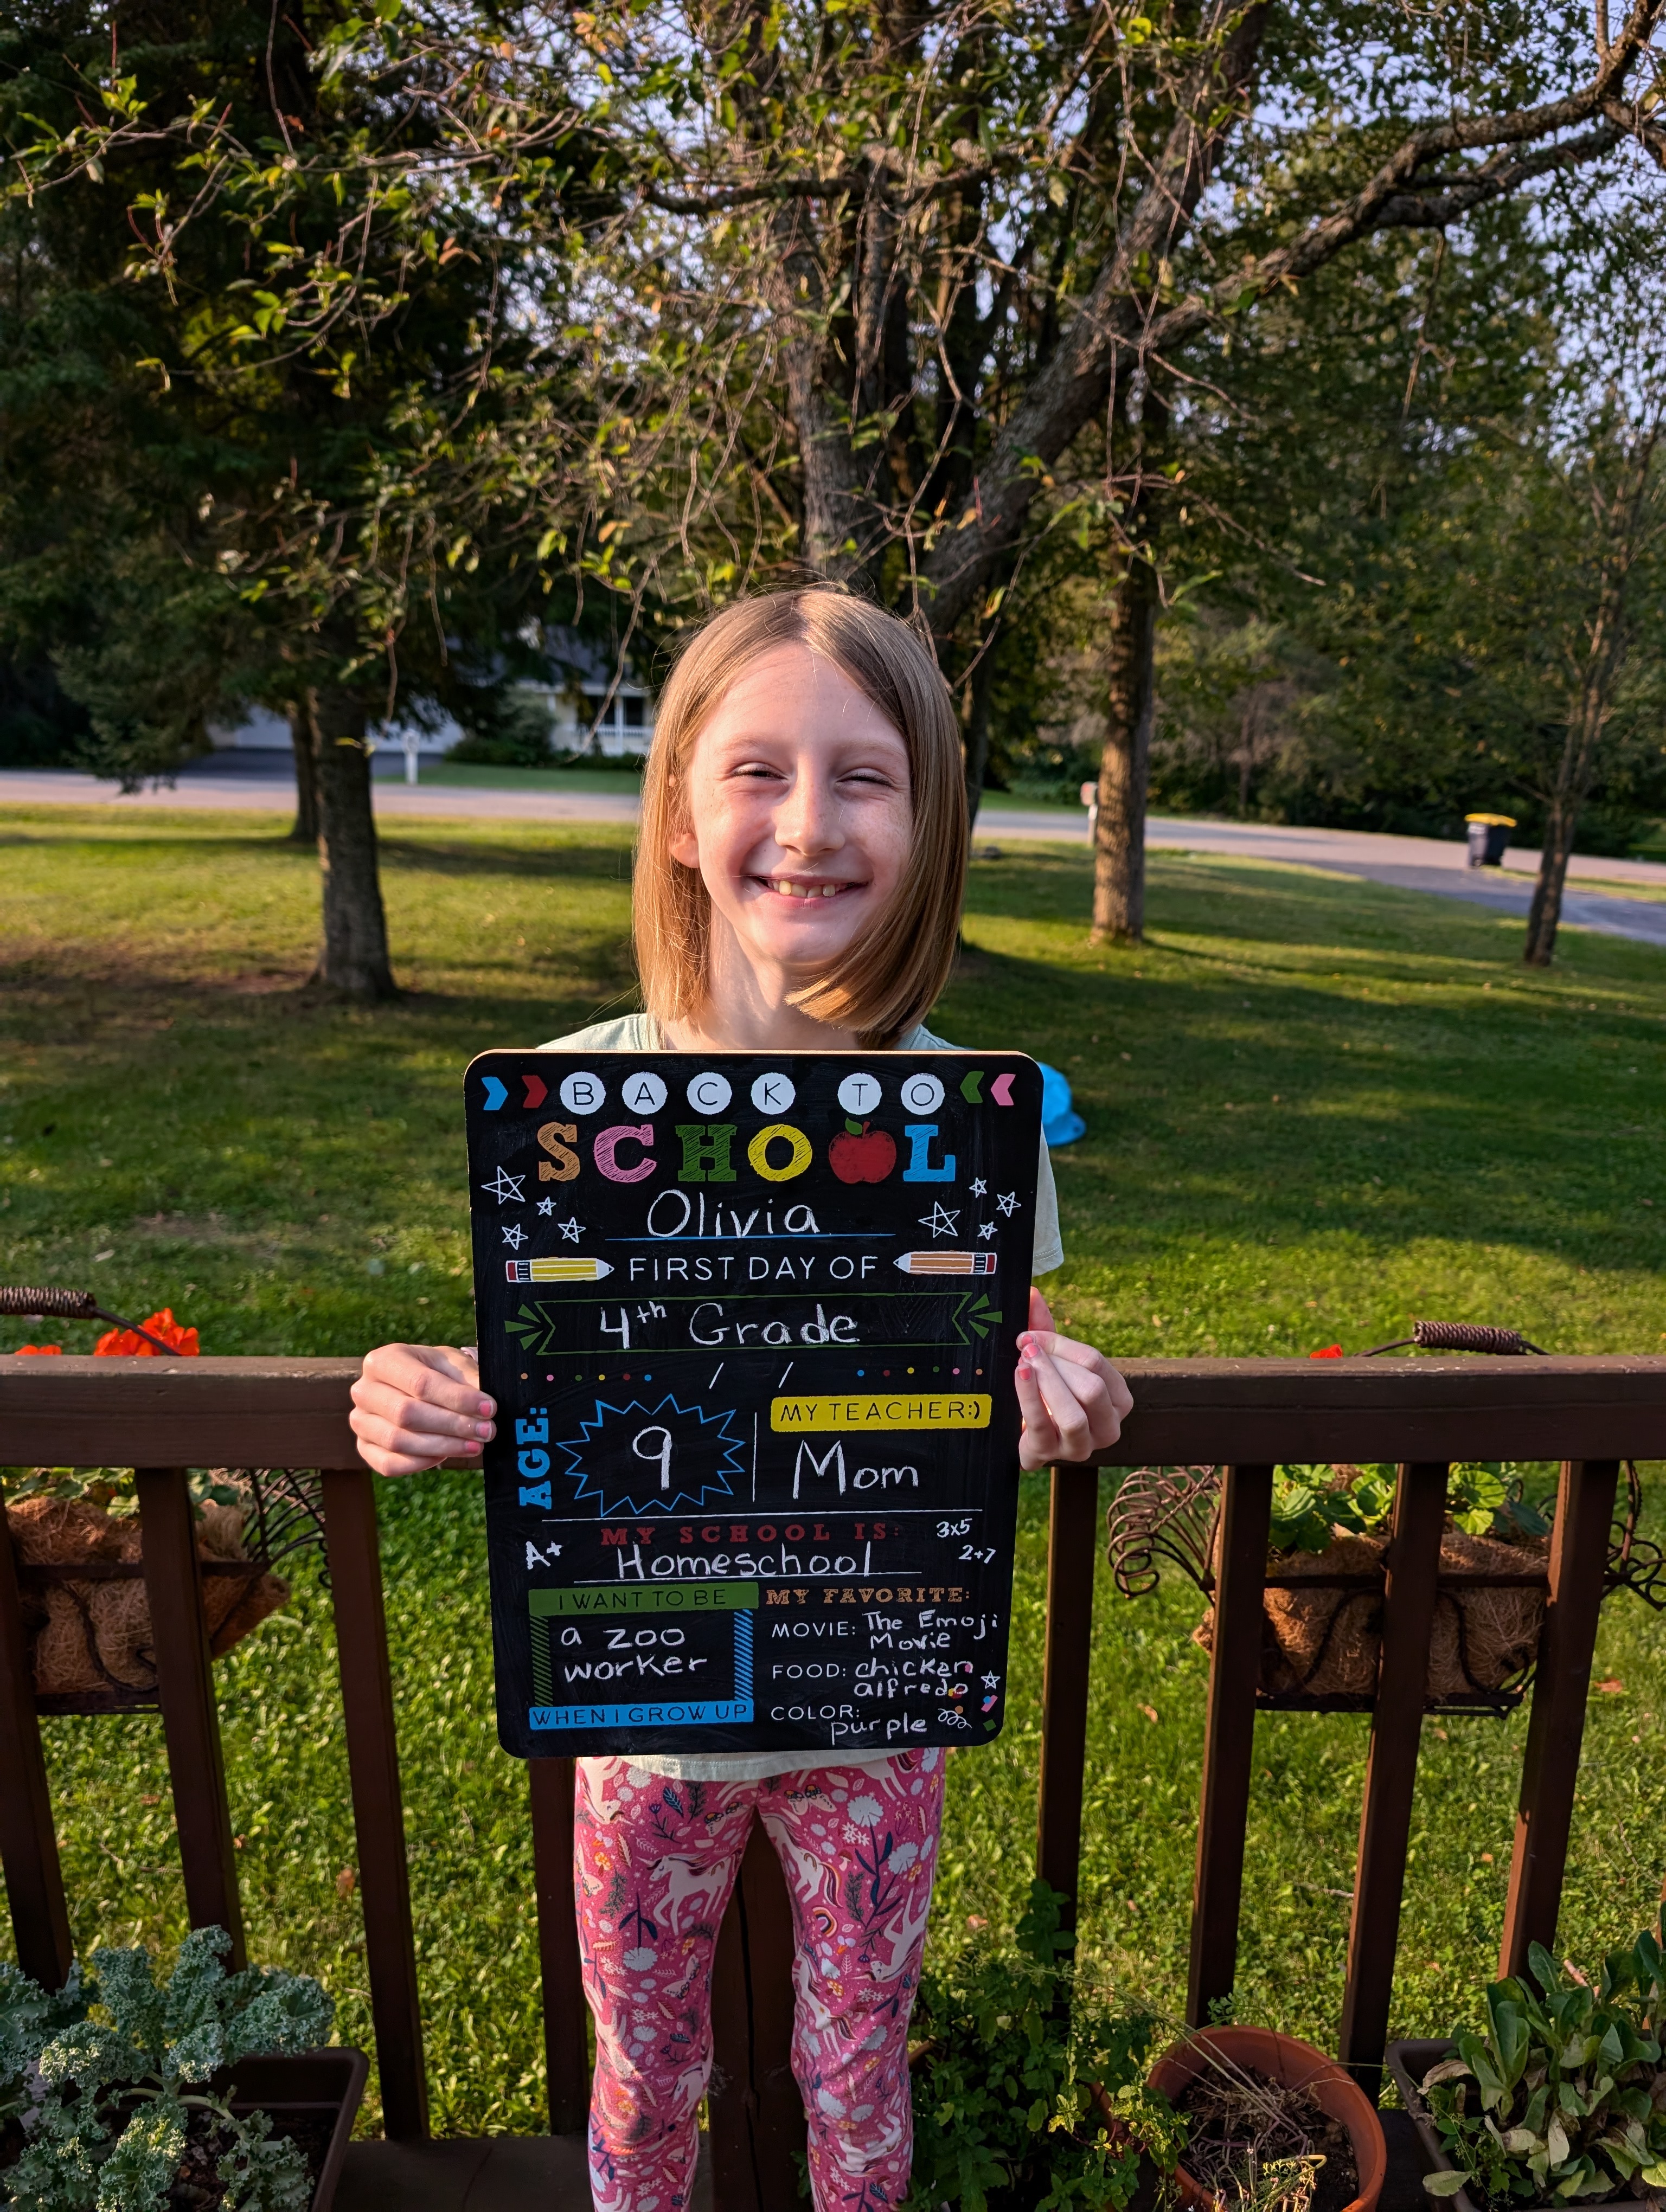 BACK TO
SCHOOL
Olivia
FIRST DAY OF
4th Grade
/ /
AGE: 9
MY TEACHER:)
Mom
MY SCHOOL IS:
Homeschool
A+
3x5
2+7
I WANT TO BE
a zoo
worker
WHEN I GROW UP
MY FAVORITE:
MOVIE: The Emoji
Movie
FOOD: chicken
alfredo
COLOR:
purple